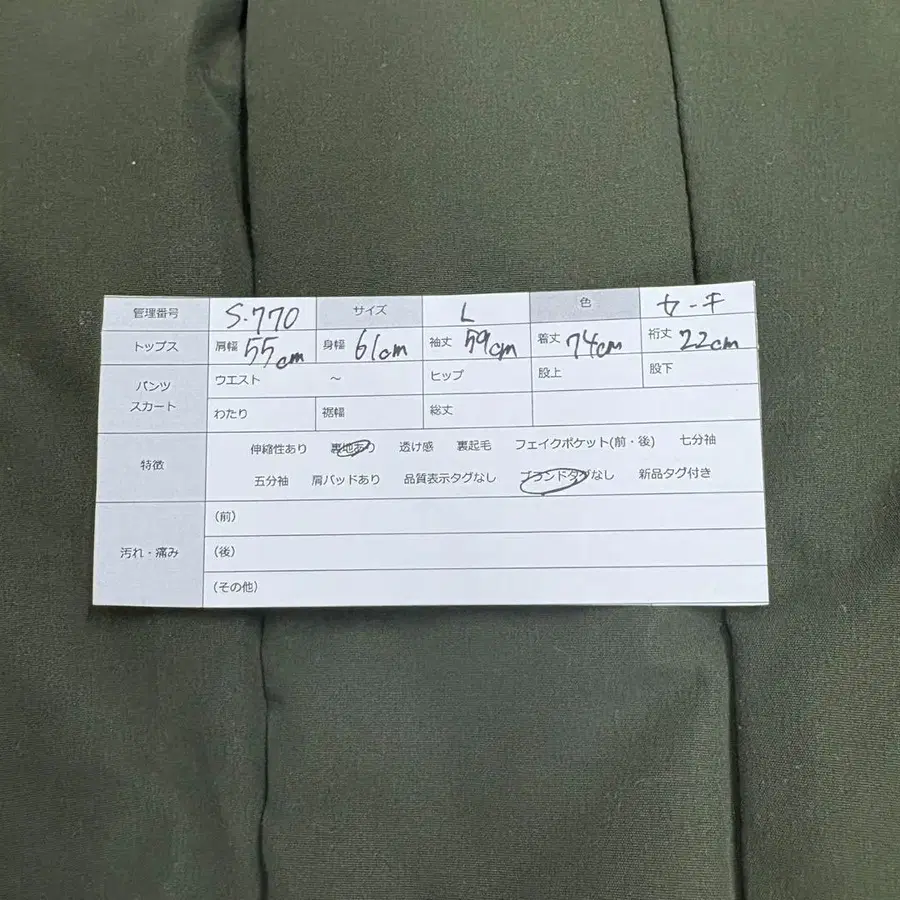 管理番号 S-770 サイズ L 色 カーキ
トップス 肩幅 55cm 身幅 61cm 袖丈 59cm 着丈 74cm 裄丈 22cm
パンツ スカート ウエスト ～ ヒップ 股上 股下
わたり 裾幅 総丈
特徴 伸縮性あり 裏地あり 透け感 裏起毛 フェイクポケット(前・後) 七分袖
五分袖 肩パッドあり 品質表示タグなし ブランドタグなし 新品タグ付き
(前)
汚れ・痛み (後)
(その他)